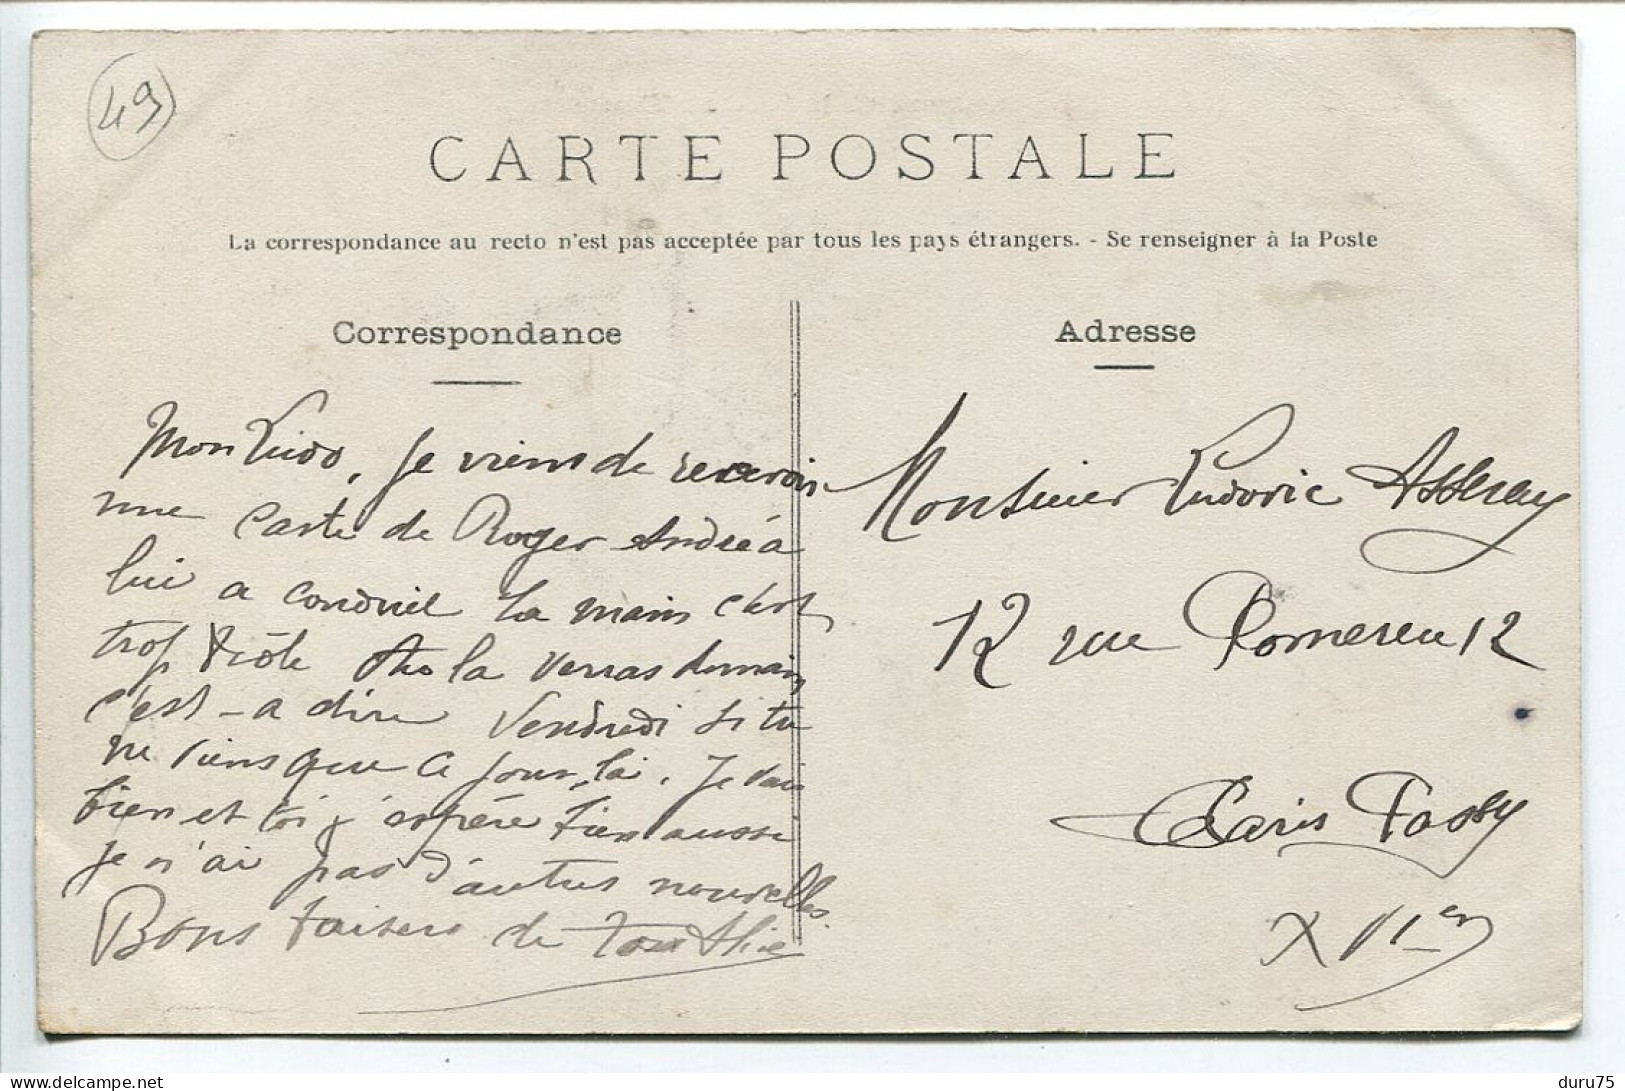 49
CARTE POSTALE
La correspondance au recto n'est pas acceptée par tous les pays étrangers. - Se renseigner à la Poste
Correspondance
Mon Ludo, Je viens de recevoir
une carte de Roger André à
lui a conduit la main c'est
trop drôle la verras demain
c'est-a dire Vendredi si tu
ne viens que ce jour, là. Je vais
bien et toi j'espère bien aussi
je n'ai pas d'autres nouvelles.
Bons baisers de
Adresse
Monsieur Ludovic
12 rue Pomereu 12
Paris Passy
XVIer
duru75